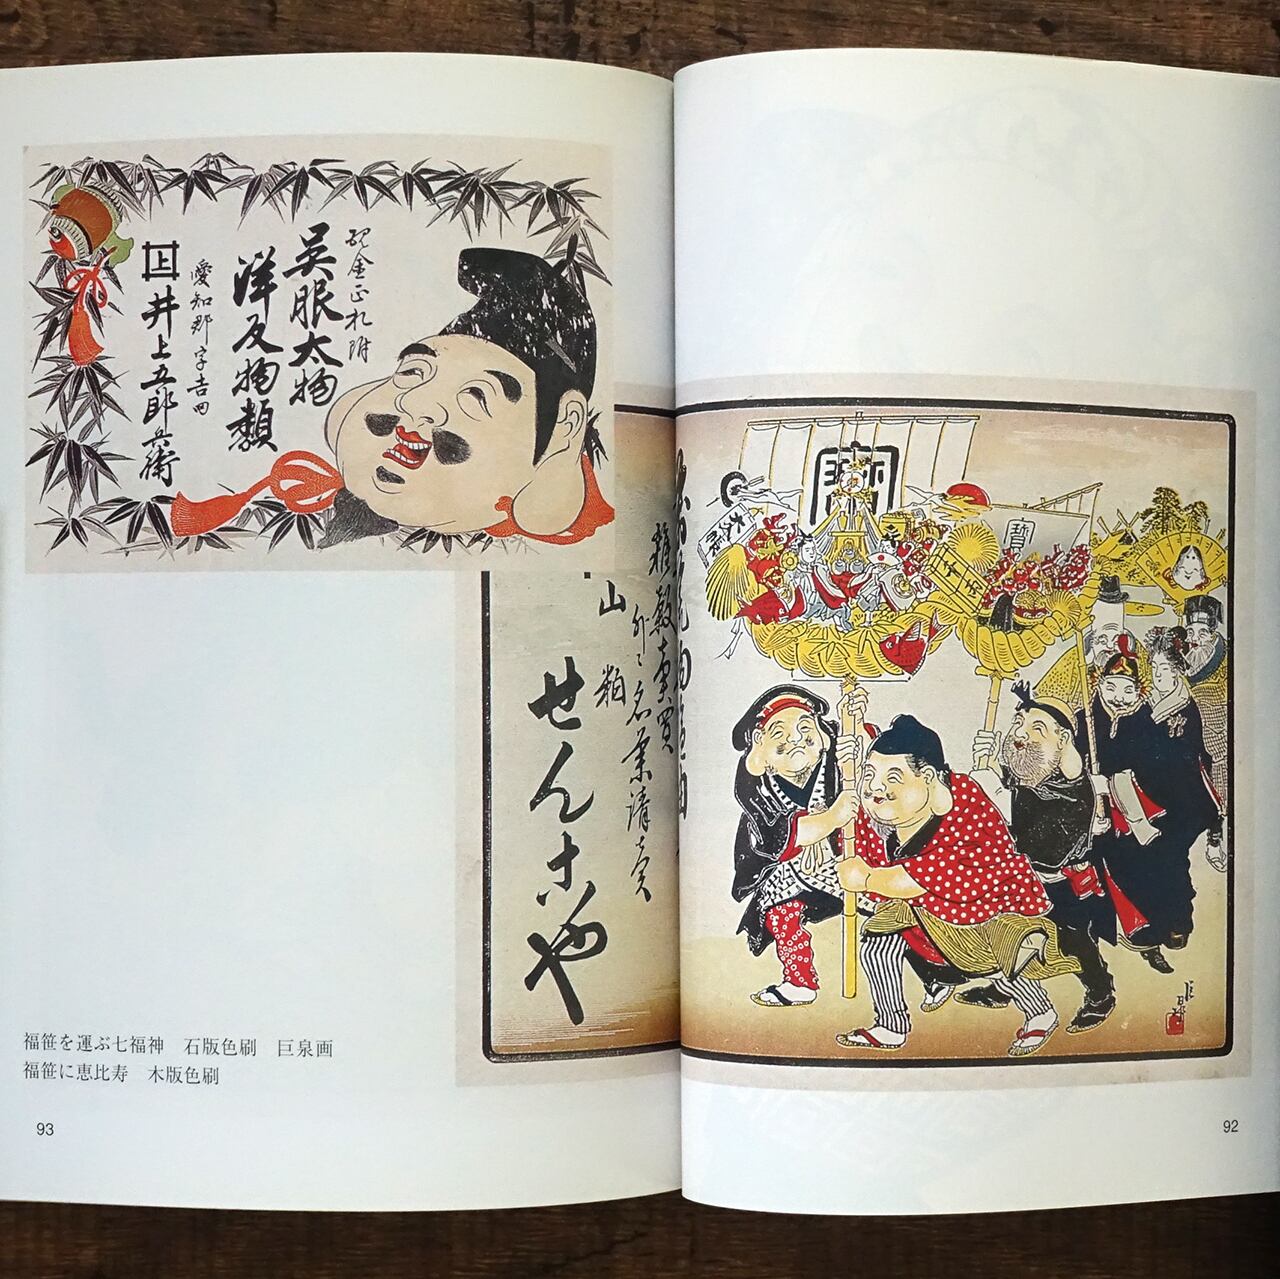 現金正札附
呉服太物
洋反物類
愛知郡字吉田
井上五郎兵衛
寶
雑穀売買
山
粕
せんこや
福笹を運ぶ七福神　石版色刷　巨泉画
福笹に恵比寿　木版色刷
93
92